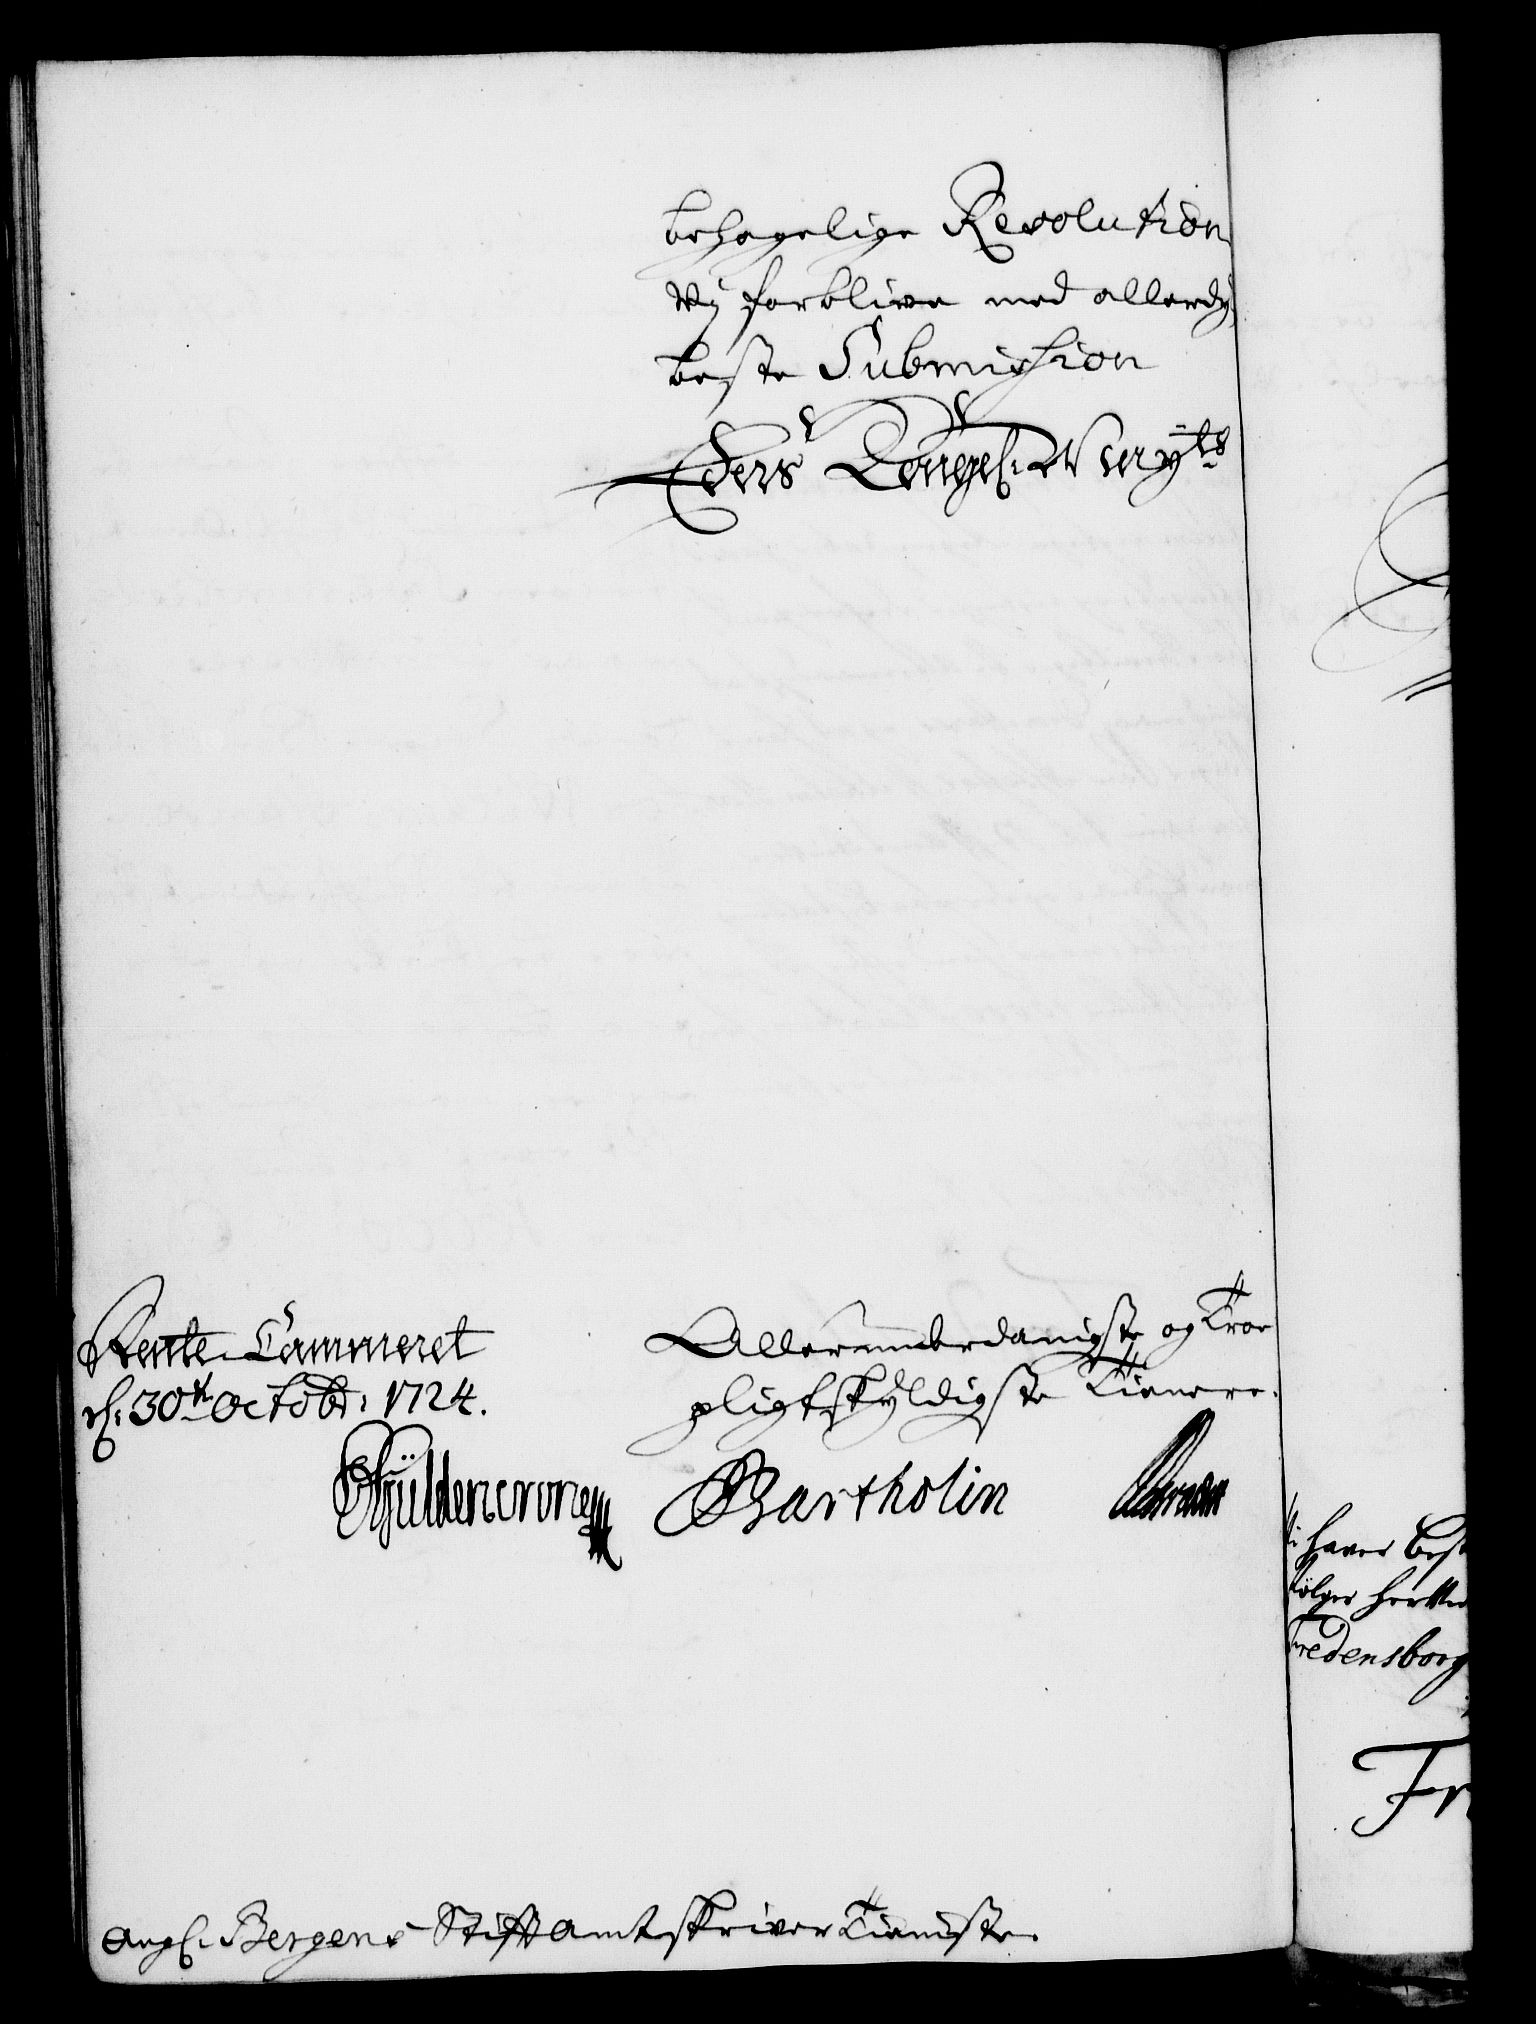 behagelige Resolution
Vj forblive med allerdy-
beste Submission
Eders Kongel. Mayts
Rente-Cammeret
d. 30t Octobr: 1724.
Allerunderdanigste og Troe
pligtskyldigste Tienere.
Güldencrone Bartholin
Ang. Bergens Stiftamtskriver Tieniste.
haver
følger
Fredensborg
Fr